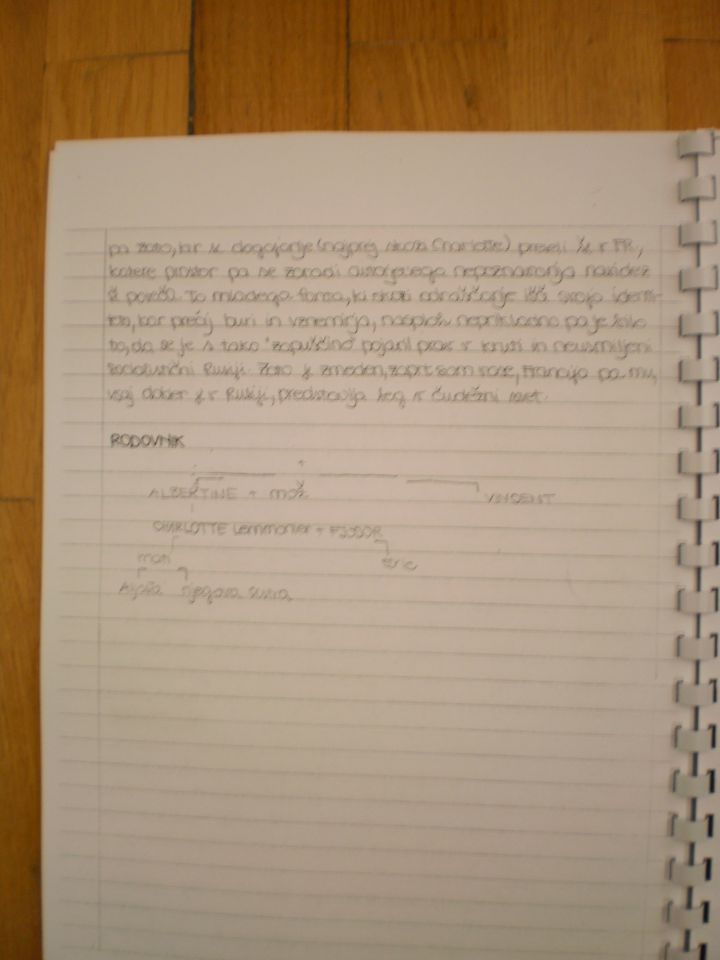 pa zato, ker se dogajanje (najprej skoza Charlotte) preseli še v FR,
katere prostor pa se zaradi avtorjevega nepoznavanja navidez
še poveča. To mladega fanta, ki skozi odraščanje išče svojo identi-
teto, kar precej buri in vznemirja, nasploh neprikladno pa je bilo
to, da se je s tako "zapuščino" pojavil prav v kruti in neusmiljeni
socialistični Rusiji. Zato je zmeden, zaprt sam vase, Francija pa mu,
vsaj dokler je v Rusiji, predstavlja beg v čudežni svet.
RODOVNIK
+
ALBERTINE + mož VINCENT
CHARLOTTE Lemmonier + FJODOR
mati stric
Aljoša njegova sestra